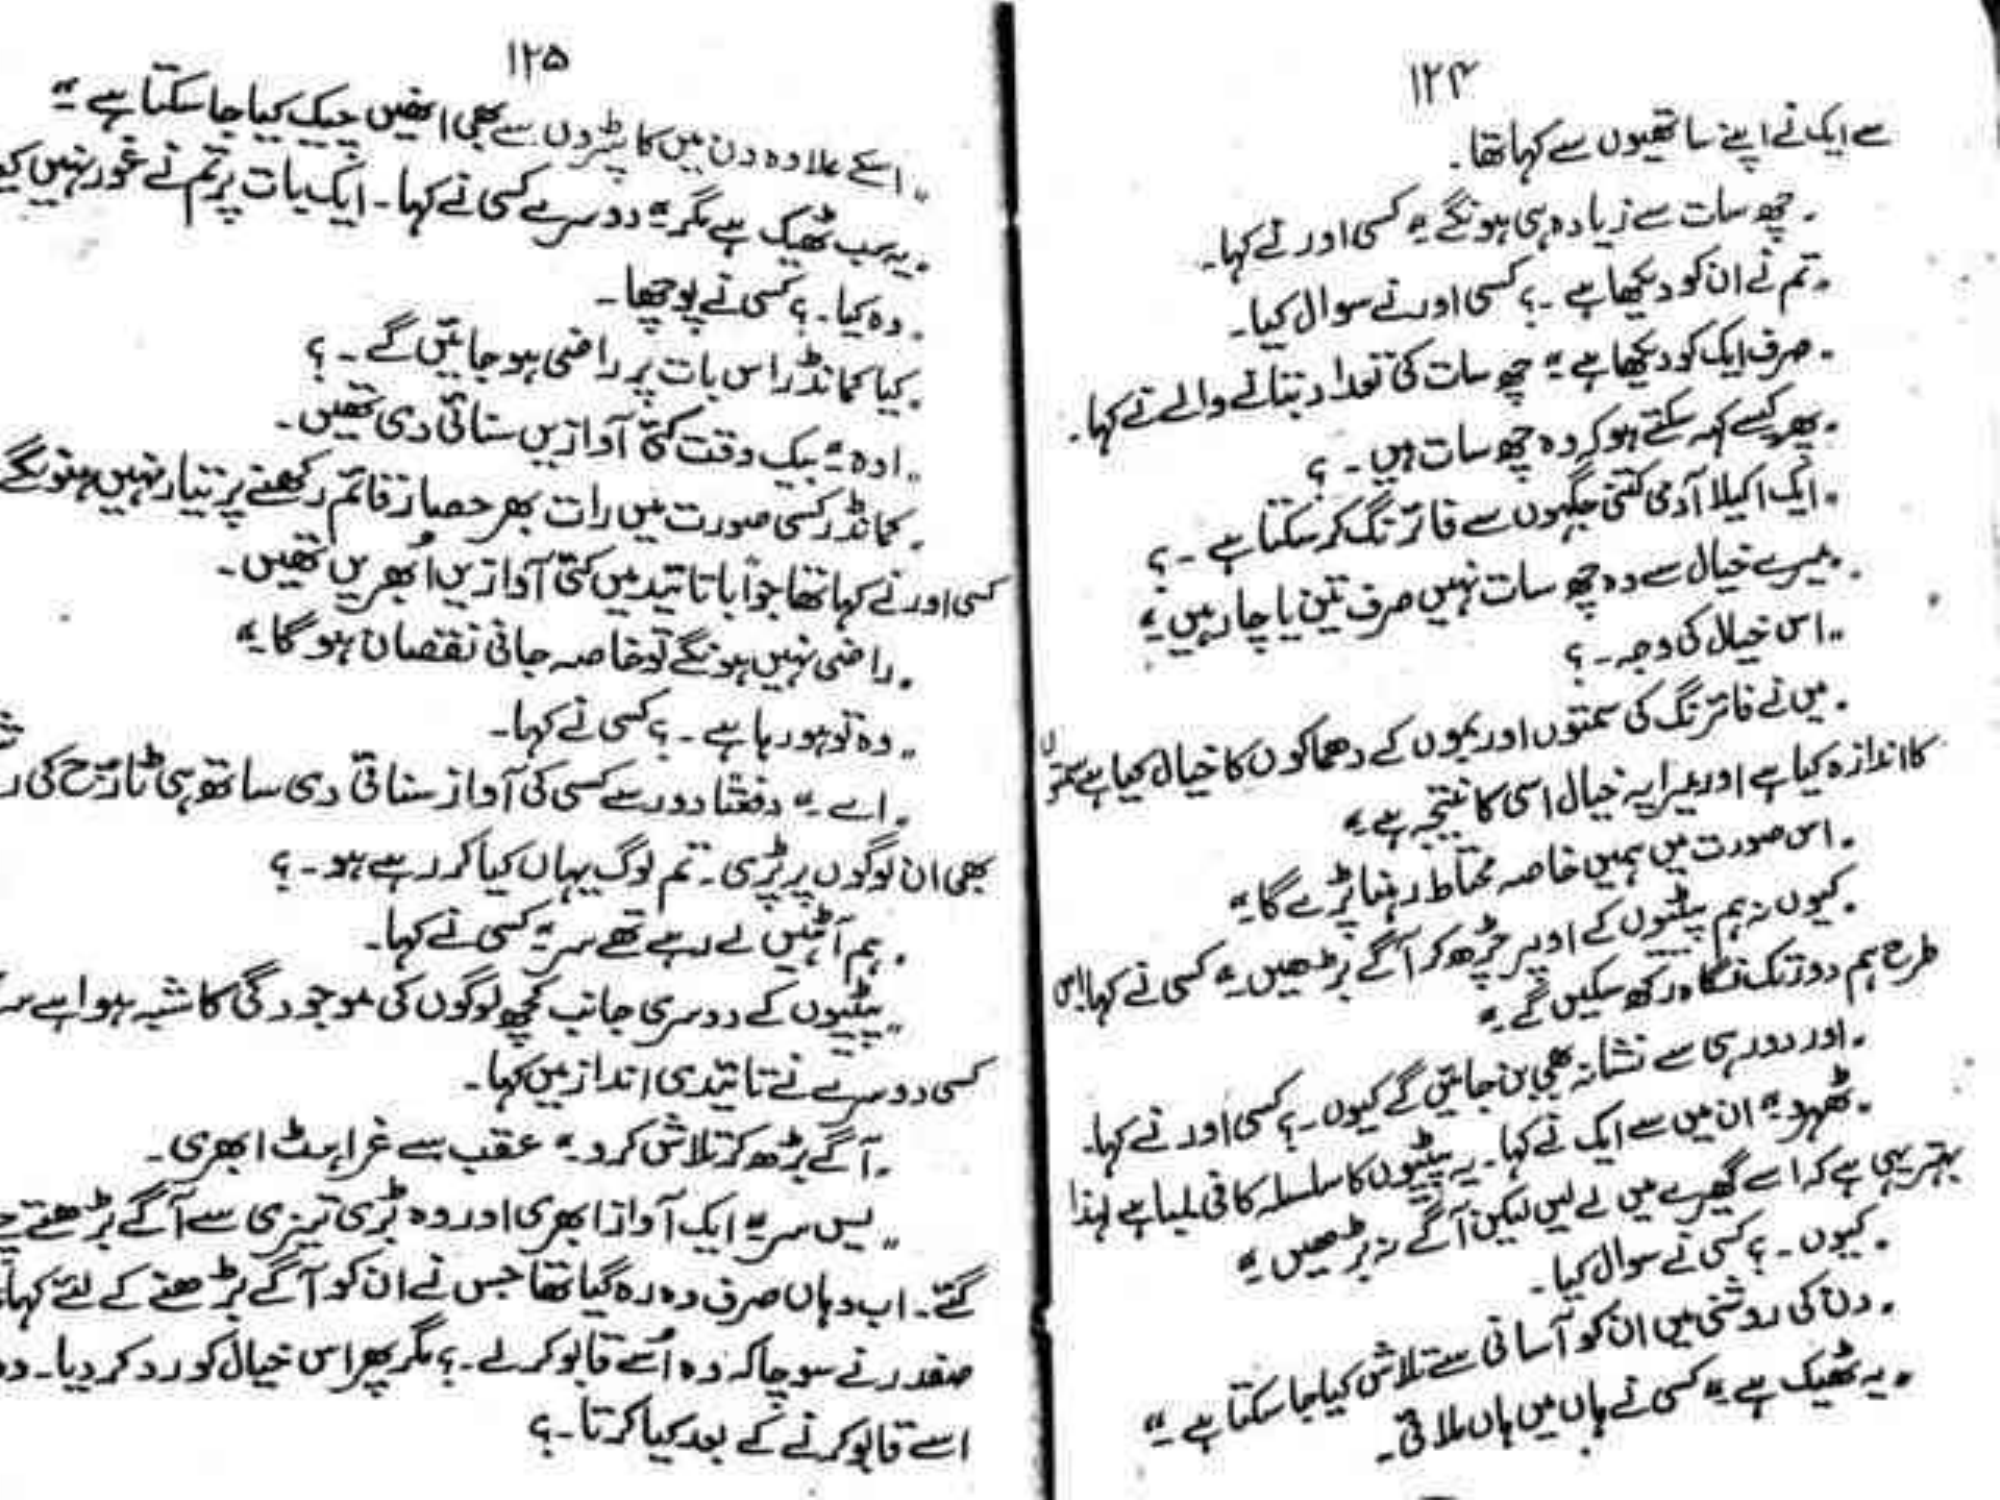 ۱۲۴
سے ایک نے اپنے ساتھیوں سے کہا تھا۔
۔ چھ سات سے زیادہ ہی ہونگے ۔" کسی اور نے کہا۔
"تم نے ان کو دیکھا ہے ۔؟ کسی اور نے سوال کیا۔
۔ صرف ایک کو دیکھا ہے ۔" چھ سات کی تعداد بتانے والے نے کہا۔
۔ پھر کیسے کہہ سکتے ہو کہ وہ چھ سات ہیں ۔ ؟
"ایک اکیلا آدمی کتنی جگہوں سے فائرنگ کر سکتا ہے ۔ ؟
"میرے خیال سے وہ چھ سات نہیں صرف تین یا چار ہیں ۔"
"اس خیال کی وجہ ۔ ؟
۔ میں نے فائرنگ کی سمتوں اور بموں کے دھماکوں کا خیال کیا ہے
کا اندازہ کیا ہے اور میرا یہ خیال اسی کا نتیجہ ہے ۔"
۔ اس صورت میں ہمیں خاصہ محتاط رہنا پڑے گا ۔"
۔ کیوں نہ ہم پیٹیوں کے اوپر چڑھ کر آگے بڑھیں ۔" کسی نے کہا اس
طرح ہم دور تک نگاہ رکھ سکیں گے ۔"
۔ اور دور ہی سے نشانہ بھی بن جائیں گے کیوں ۔؟ کسی اور نے کہا۔
۔ ٹھہرو ۔" ان میں سے ایک نے کہا۔ یہ پیٹیوں کا سلسلہ کافی لمبا ہے لہذا
بہتر یہی ہے کہ اسے گھیرے میں لے لیں لیکن آگے نہ بڑھیں ۔"
۔ کیوں ۔ ؟ کسی نے سوال کیا۔
۔ دن کی روشنی میں ان کو آسانی سے تلاش کیا جا سکتا ہے ۔"
"یہ ٹھیک ہے ۔" کسی نے ہاں میں ہاں ملائی۔
۱۲۵
"اسکے علاوہ دن میں کاپٹروں سے بھی انھیں چیک کیا جا سکتا ہے ۔"
"یہ سب ٹھیک ہے مگر ۔" دوسرے کسی نے کہا۔ ایک بات پر تم نے غور نہیں
۔ وہ کیا ۔ ؟ کسی نے پوچھا۔
۔ کیا کمانڈر اس بات پر راضی ہو جائیں گے ۔ ؟
"اوہ ۔" بیک وقت کئی آوازیں سنائی دی تھیں۔
۔ کمانڈر کسی صورت میں رات بھر حصار قائم رکھنے پر تیار نہیں ہونگے
کسی اور نے کہا تھا جواباً تائید میں کئی آوازیں اُبھریں تھیں۔
۔ راضی نہیں ہونگے تو خاصہ جانی نقصان ہو گا ۔"
"وہ تو ہو رہا ہے ۔ ؟ کسی نے کہا۔
۔ اے ۔" دفعتاً دور سے کسی کی آواز سنائی دی ساتھ ہی ٹارچ کی
بھی ان لوگوں پر پڑی ۔ تم لوگ یہاں کیا کر رہے ہو ۔ ؟
۔ ہم آہٹیں لے رہے تھے سر ۔" کسی نے کہا۔
"پیٹیوں کے دوسری جانب کچھ لوگوں کی موجودگی کا شبہ ہوا ہے
کسی دوسرے نے تائیدی انداز میں کہا۔
۔ آگے بڑھ کر تلاش کرو ۔" عقب سے غراہٹ ابھری۔
"یس سر ۔" ایک آواز ابھری اور وہ بڑی تیزی سے آگے بڑھتے
گئے ۔ اب وہاں صرف وہ رہ گیا تھا جس نے ان کو آگے بڑھنے کے لئے کہا
صفدر نے سوچا کہ وہ اُسے قابو کر لے ۔؟ مگر پھر اس خیال کو رد کر دیا ۔ وہ
اسے قابو کرنے کے بعد کیا کرتا ۔ ؟